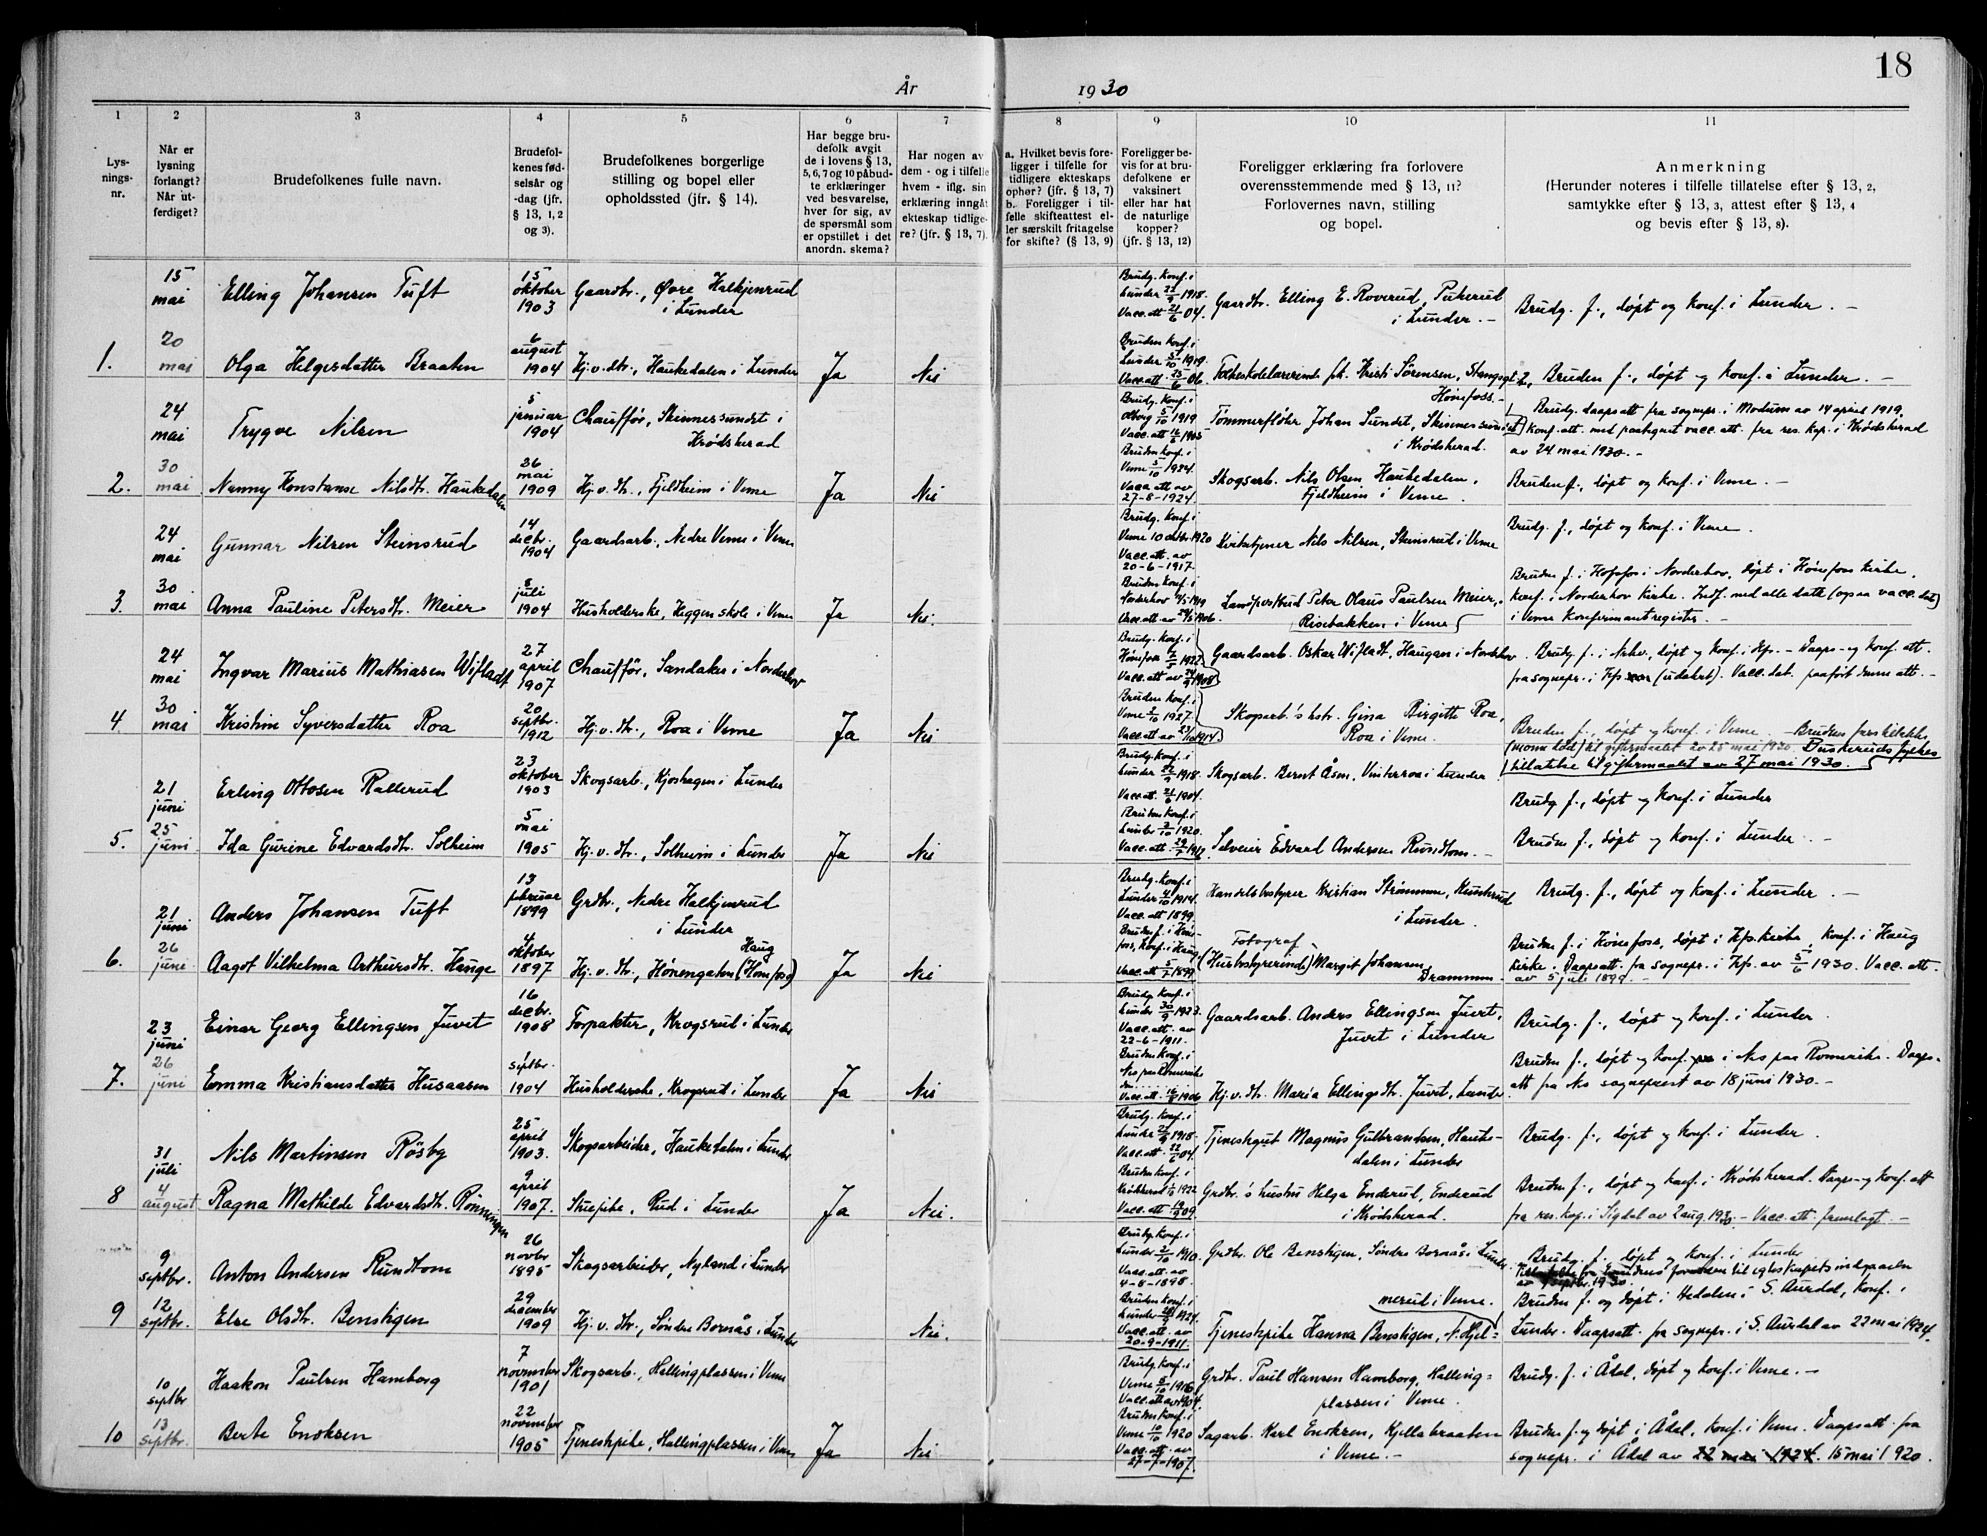 18
År
1930
1
2
3
4
5
6
7
8
9
10
11
Lys-
nings-
nr.
Når er
lysning
forlangt?
Når ut-
ferdiget?
Brudefolkenes fulle navn.
Brudefol-
kenes fød-
selsår og
-dag (jfr.
§ 13, 1, 2
og 3).
Brudefolkenes borgerlige
stilling og bopel eller
opholdssted (jfr. § 14).
Har begge bru-
defolk avgit
de i lovens § 13,
5, 6, 7 og 10 påbud-
te erklæringer
ved besvarelse,
hver for sig, av
de spørsmål som
er opstillet i det
anordn. skema?
Har nogen av
dem - og i tilfelle
hvem - iflg. sin
erklæring inngåt
ekteskap tidlige-
re? (jfr. § 13, 7).
a. Hvilket bevis fore-
ligger i tilfelle for
tidligere ekteskaps
ophør? (jfr. § 13, 7)
b. Foreligger i til-
felle skifteattest el-
ler særskilt fritagelse
for skifte? (§ 13, 9)
Foreligger be-
vis for at bru-
defolkene er
vaksinert
eller har hat
de naturlige
kopper?
(jfr. § 13, 12)
Foreligger erklæring fra forlovere
overensstemmende med § 13, 11?
Forlovernes navn, stilling
og bopel.
Anmerkning
(Herunder noteres i tilfelle tillatelse efter § 13, 2,
samtykke efter § 13, 3, attest efter § 13, 4
og bevis efter § 13, 8).
15
mai
Elling Johansen Tuft
15
oktober
1903
Gaardbr., Øvre Halkjenrud
i Lunder
Brudg. konf. i
Lunder 22/9 1918.
Vacc. att 21/6 04.
Gaardbr. Elling E. Roverud, Pukerud
i Lunder. -
Brudg. f., døpt og konf. i Lunder. -
1.
20
mai
Olga Helgesdatter Braaten
6
august
1904
Hj. v. dtr., Haukedalen i Lunder
Ja
Nei
Bruden konf. i
Lunder 5/10 1919.
Vacc. att 25/6 06.
Folkeskolelærerinde frk. Kristi Sørensen, Stangsgt 2,
Hönefoss. -
Bruden f., døpt og konf. i Lunder. -
24
mai
Trygve Nilsen
5
januar
1904
Chauffør, Skinnessundet i
Krødsherad
Brudg. konf. i
Olberg 5/10 1919
Vacc. att 16/6 1905
Tømmerfløter Johan Sundet, Skinnessundet
i Krødsherad.
Brudg. daapsatt fra sognepr. i Modum av 14 april 1919,
konf. att. med paategnet vacc. att. fra res. kap. i Krødsherad
av 24 mai 1930. -
2.
30
mai
Nanny Konstanse Nilsdtr. Haukedalen
26
mai
1909
Hj. v. dtr., Fjeldheim i Veme
Ja
Nei
Bruden konf. i
Veme 5/10 1924.
Vacc att av
27-8-1924.
Skogsarb. Nils Olsen Haukedalen,
Fjeldheim i Veme.
Bruden f., døpt og konf. i Veme. -
24
mai
Gunnar Nilsen Steinsrud
14
decbr.
1904
Gaardsarb., Nedre Veme i Veme
Brudg. konf. i
Veme 10 oktbr. 1920
Vacc. att. av
20-6-1917.
Kirketjener Nils Nilsen, Steinsrud i Veme
Brudg. f., døpt og konf. i Veme.
3.
30
mai
Anna Pauline Petersdtr. Meier
8
juli
1904
Husholderske, Heggen skole i Veme
Ja
Nei.
Bruden konf. i
Norderhov 1919
Vacc. att av 1906.
Landpostbud Peter Olaus Paulsen Meier,
Risebakken i Veme
Bruden f. i Hofsfos i Norderhov, døpt i Hønefoss kirke,
konf. i Norderhov kirke. Indf. med alle data (ogsaa vacc. dat)
i Veme konfirmantregister. -
24
mai
Ingvar Marius Mathiasen Wifladt
27
april
1907
Chauffør, Sandaker i Norderhov
Brudg. konf. i
Hönefoss 1922
Vacc. att av 1908
Gaardsarb. Oskar Wifladt, Haugan i Norderhov.
Brudg. f. i Nrhv., døpt og konf. i Hfs. - Daaps- og konf. att.
fra sognepr. i Hfs (udatert). Vacc. dat. paaført denne att. -
4
30
mai
Kristine Syversdatter Roa
20
septbr.
1912
Hj. v. dtr., Roa i Veme
Ja
Nei
Bruden konf. i
Veme 2/10 1927.
Vacc. att av 1914.
Skogsarb's hstr. Gina Birgitte Roa,
Roa i Veme.
Bruden f., døpt og konf. i Veme. - Brudens
til giftermaalet av 25 mai 1930. Buskeruds fylkes
tillatelse til giftermaalet av 27 mai 1930.
21
juni
Erling Ottosen Rallerud
23
oktober
1903
Skogsarb., Kjoshagen i Lunder
Brudg. konf. i
Lunder 22/9 1918.
Vacc. att. 21/6 1904.
Skogsarb. Bernt Åsen, Vinterroa i Lunder
Brudg f., døpt og konf. i Lunder
5.
25
juni
Ida Gurine Edvardsdtr. Solheim
5
mai
1905
Hj. v. dtr., Solheim i Lunder
Ja
Nei
Bruden konf. i
Lunder 3/10 1920.
Vacc. att. 1912.
Selveier Edvard Andersen Rundtom. -
Bruden f., døpt og konf. i Lunder. -
21
juni
Anders Johansen Tuft
13
februar
1899
Grdbr., Nedre Halkjenrud
i Lunder
Brudg. konf. i
Lunder 4/10 1914.
Vacc. att 1899.
Handelsbestyrer Kristian Strømmen, Kunstrud
i Lunder.
Brudg. f., døpt og konf. i Lunder. -
6.
26
juni
Aagot Vilhelma Arthursdtr. Hauge
4
oktober
1897
Hj. v. dtr., Hønengaten (Hønefos)
Haug
Ja
Nei
Bruden f. i Høne-
fos, konf. i Haug
Vacc. att 5/7 1899
Fotograf
(Husbestyrerinde) Margit Johansen
Drammen -
Bruden f. i Hönefoss, døpt i Hfs. kirke, konf. i Haug
kirke. Daapsatt. fra sognepr. i Hfs. av 5/6 1930. Vacc. att.
av 5 juli 1899. -
23
juni
Einar Georg Ellingsen Juvet
16
decbr.
1908
Forpakter, Krogsrud i Lunder
Brudg. konf. i
Lunder 30/9 1923.
Vacc. att. av
22-6-1911.
Gaardsarb. Anders Ellingsen Juvet,
Juvet i Lunder
Brudg. f., døpt og konf. i Lunder.
7.
26
juni
Emma Kristiansdatter Husaasen
septbr.
1904
Husholderske, Krogsrud i Lunder
Ja
Nei
Bruden konf. i
Nes paa Romerike
den.........
Vacc. att. 1906
Hj. v. dtr. Maria Ellingsdtr. Juvet, Lunder.
Bruden f., døpt og konf. i Nes paa Romerike. Daaps-
att fra Nes sogneprest av 18 juni 1930. -
31
juli
Nils Martinsen Røsby
25
april
1903.
Skogsarbeider, Haukedalen i Lunder
Brudg. konf. i
Lunder 22/9 1918.
Vacc. att. 22/6 04.
Tjenestgut Magnus Gulbrandsen, Hauke-
dalen i Lunder
Brudg. f., døpt og konf. i Lunder.
8
4
august
Ragna Mathilde Edvardsdtr. Rønningen
9
april
1907.
Stuepike, Rud i Lunder
Ja
Nei.
Bruden konf. i
Krødsherad 1/10 1922
Vacc. att. 1909.
Grdbr.'s hustru Helga Enderud, Enderud
i Krødsherad.
Bruden f., døpt og konf. i Krødsherad. Daaps- og konf. att
fra res. kap. i Sigdal av 2 aug. 1930. - Vacc. att. fremlagt. -
9
septbr.
Anton Andersen Rundtom
26
novbr
1895
Skogsarbeider, Nyland i Lunder
Brudg. konf. i
Lunder 2/10 1910.
Vacc. att av
4-8-1898.
Grdbr. Ole Benstigen, Søndre Bornås i Lunder.
Brudg. f., døpt og konf. i Lunder
9
12
septbr.
Else Olsdtr. Benstigen
29
december
1909
Hj. v. dtr., Søndre Bornås i Lunder
Nei.
Bruden konf. i
Lunder 28/9 1924.
Vacc. att. av
20-9-1911.
merud i Veme.
Tjenestpike Hanna Benstigen, N. Hjel=
Bruden f. og døpt i Hedalen i S. Aurdal, konf. i
Lunder. Daapsatt. fra sognepr. i S. Aurdal av 22 mai 1924.
10
septbr
Haakon Paulsen Hamborg
7
november
1901
Skogsarb., Hallingplassen i Veme
Brudg. konf. i
Veme 5/10 1916
Vacc. att av 1904.
Grdbr. Paul Hansen Hamborg, Halling=
plassen i Veme.
Brudg. f. i Ådal, døpt og konf. i Veme. -
10
13
septbr.
Berte Enoksen
22
november
1905
Tjenestpike, Hallingplassen i Veme
Ja
Nei
Bruden konf. i
Veme 10/10 1920
Vacc. att. av
27-7-1907.
Sagarb. Karl Enoksen, Kjellabraaten
i Veme. -
Bruden f. og døpt i Ådal, konf. i Veme. Daapsatt. fra
sognepr. i Ådal av 22 mai 1924. 15 mai 1920.